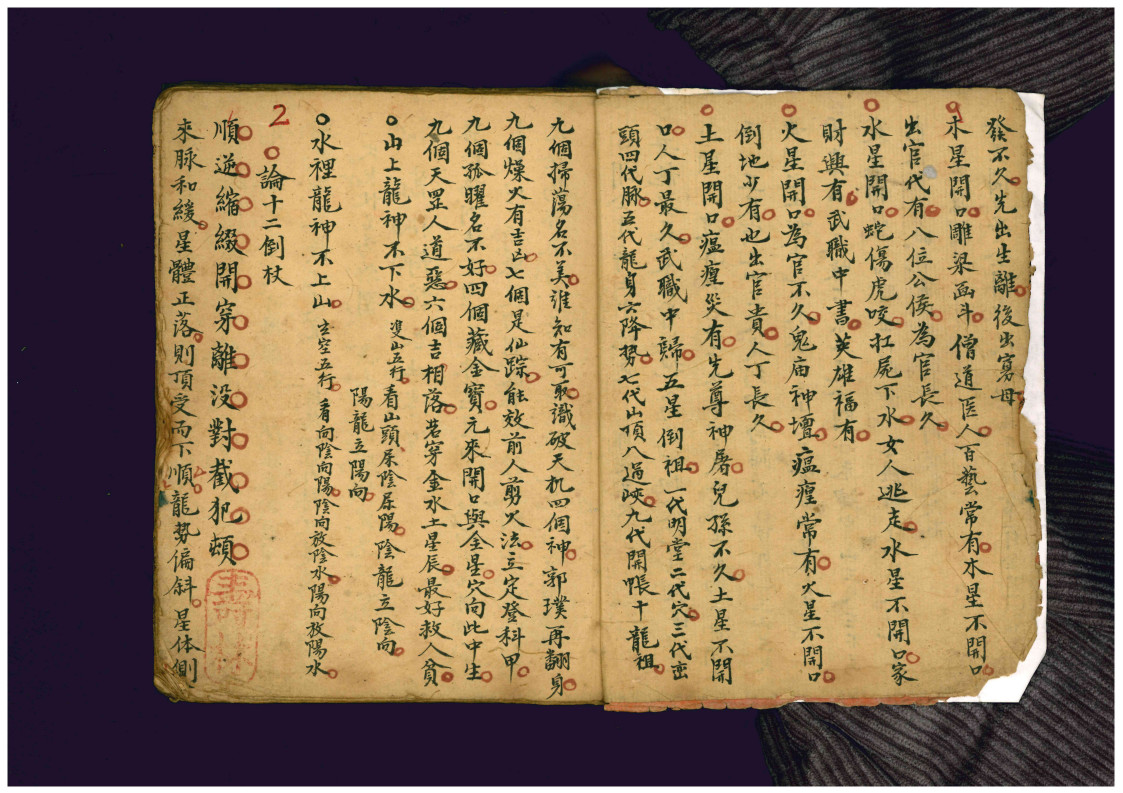 發不久先出生離後出寡母
木星開口雕梁画斗僧道医人百藝常有木星不開口
出官代有八位公侯為官長久
水星開口蛇傷虎咬扛屍下水女人逃走水星不開口家
財興有武職中書英雄福有
火星開口為官不久鬼庙神壇瘟瘽常有火星不開口
倒地少有也出官貴人丁長久
土星開口瘟瘽災有先尊神屠兒孫不久土星不開
口人丁最久武職中歸五星倒祖一代明堂二代穴三代峦
頭四代脉五代龍身六降勢七代山頂八過峽九代開帳十龍祖
九個掃蕩名不美誰知有可取識破天机四個神郭璞再翻身
九個燥火有吉凶七個是仙踪能效前人剪火法立定登科甲
九個孤曜名不好四個藏金寶元來開口與金星穴向此中生
九個天罡人道惡六個吉相落若穿金水土星辰最好救人貧
山上龍神不下水 雙山五行 看山頭屬陰屬陽陰龍立陰向
陽龍立陽向
水裡龍神不上山 玄空五行 看向陰向陽陰向放陰水陽向放陽水
2 論十二倒杖
順逆縮綴開穿離没對截犯頓
來脉和緩星體正落則頂受而下順龍勢偏斜星体側
壽林